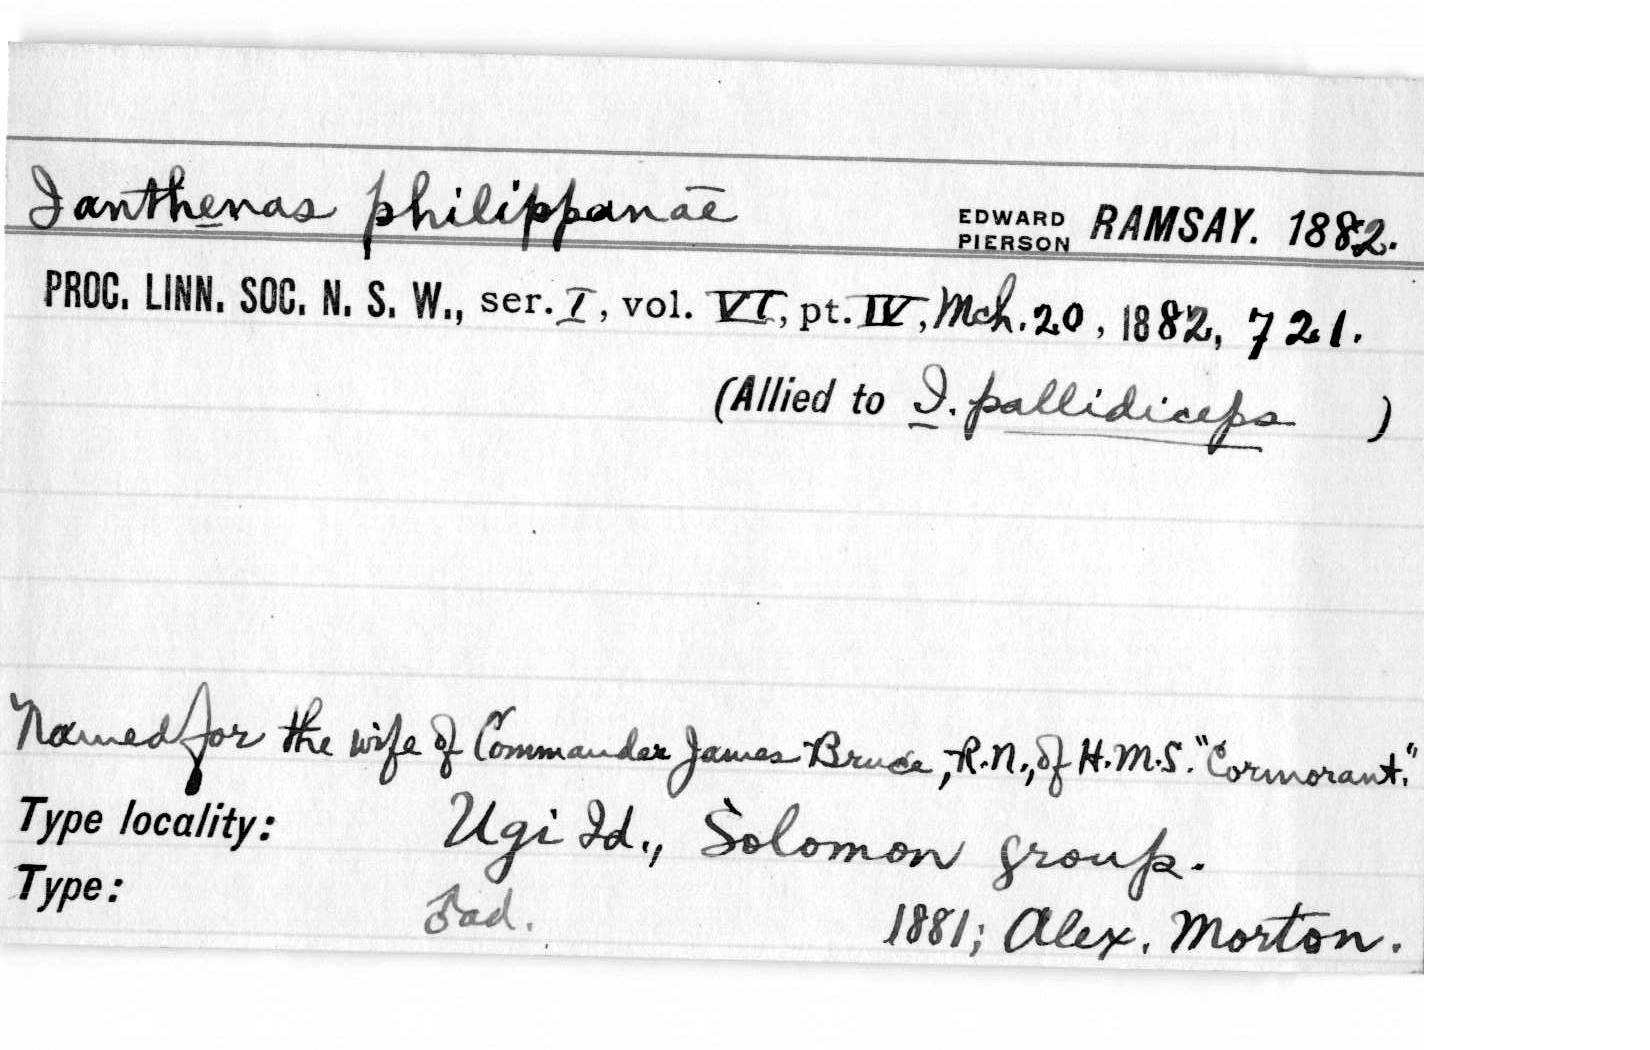 Ianthenas philippanae EDWARD PIERSON RAMSAY. 1882.
PROC. LINN. SOC. N. S. W., ser. I, vol. VI, pt. IV, Mch. 20, 1882, 721.
(Allied to I. pallidiceps )
Named for the wife of Commander James Bruce, R.N., of H.M.S. "Cormorant."
Type locality: Ugi Id., Solomon group.
Type: ♂ ad. 1881; Alex. Morton.